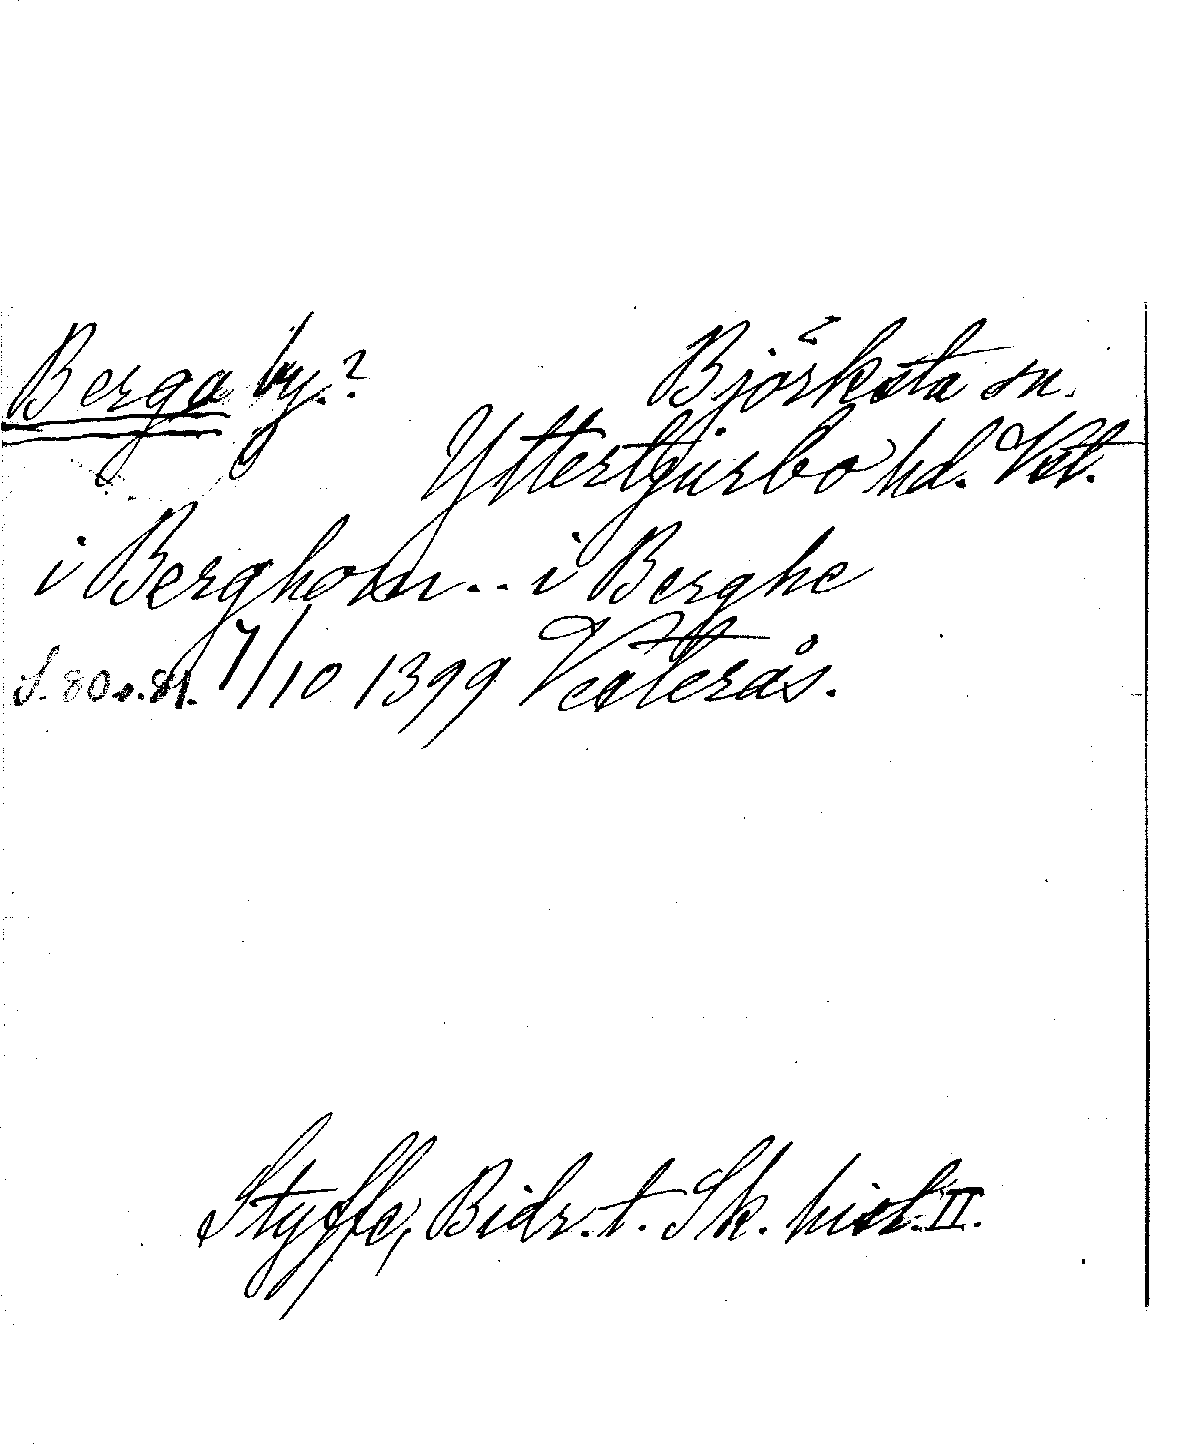 Berga by? Björksta sn.
Yttertjurbo hd. Vstl.
i Berghom.. i Berghe
S. 80 o. 81. 7/10 1399 Västerås.
Styffe, Bidr. t. Sk. hist. II.